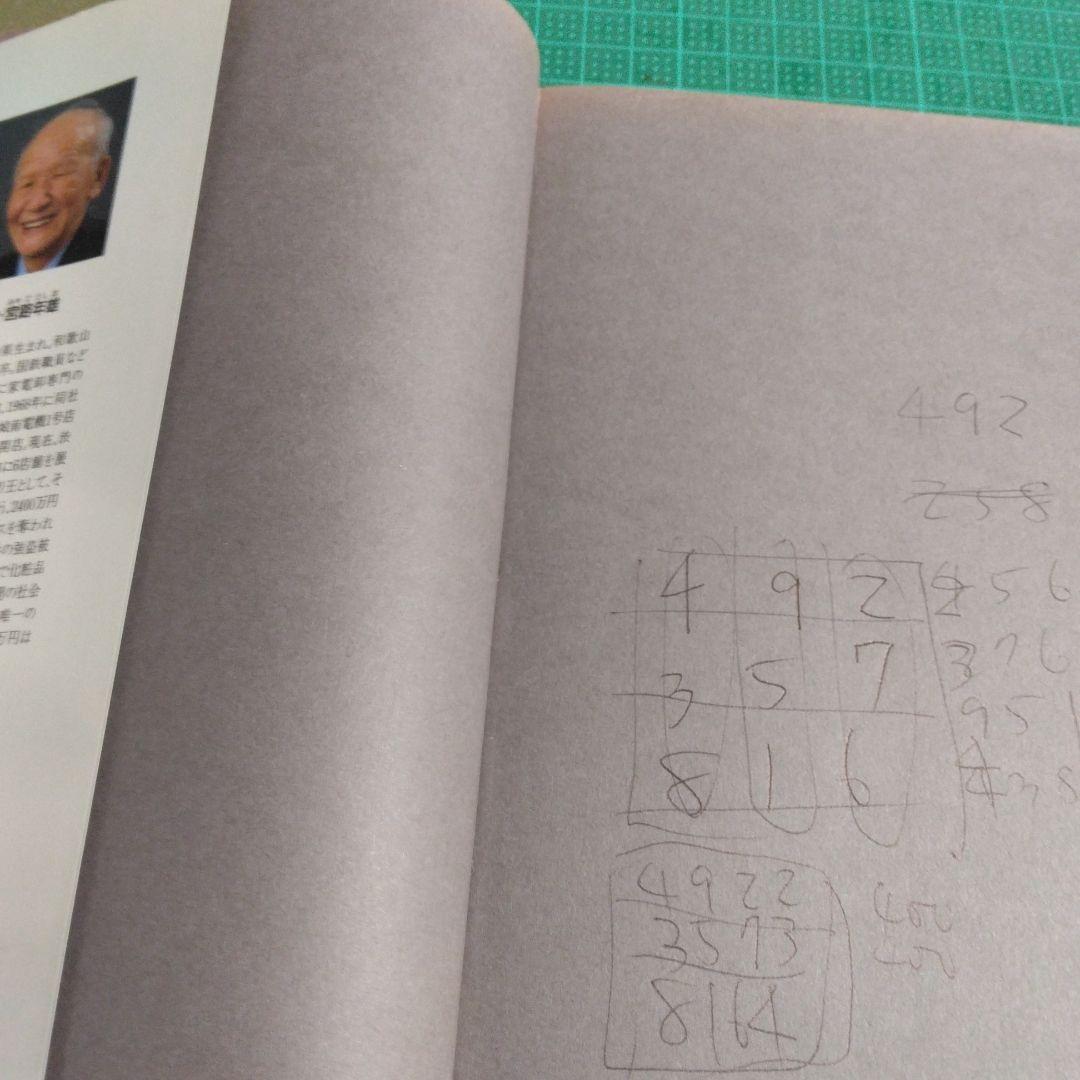 宮路年雄
県生まれ。和歌山
市。国鉄職員など
に家電卸専門の
、1968年に同社
城南電機1号店
開店。現在、渋
に6店舗を展
王として、そ
、2400万円
スを奪われ
の強盗被
で化粧品
の社会
唯一の
万円は
492
258
4 9 2
4 5 6
3 5 7
3 7 6
9 5 1
8 1 6
4 3 8
4922
3573
8164
400
400